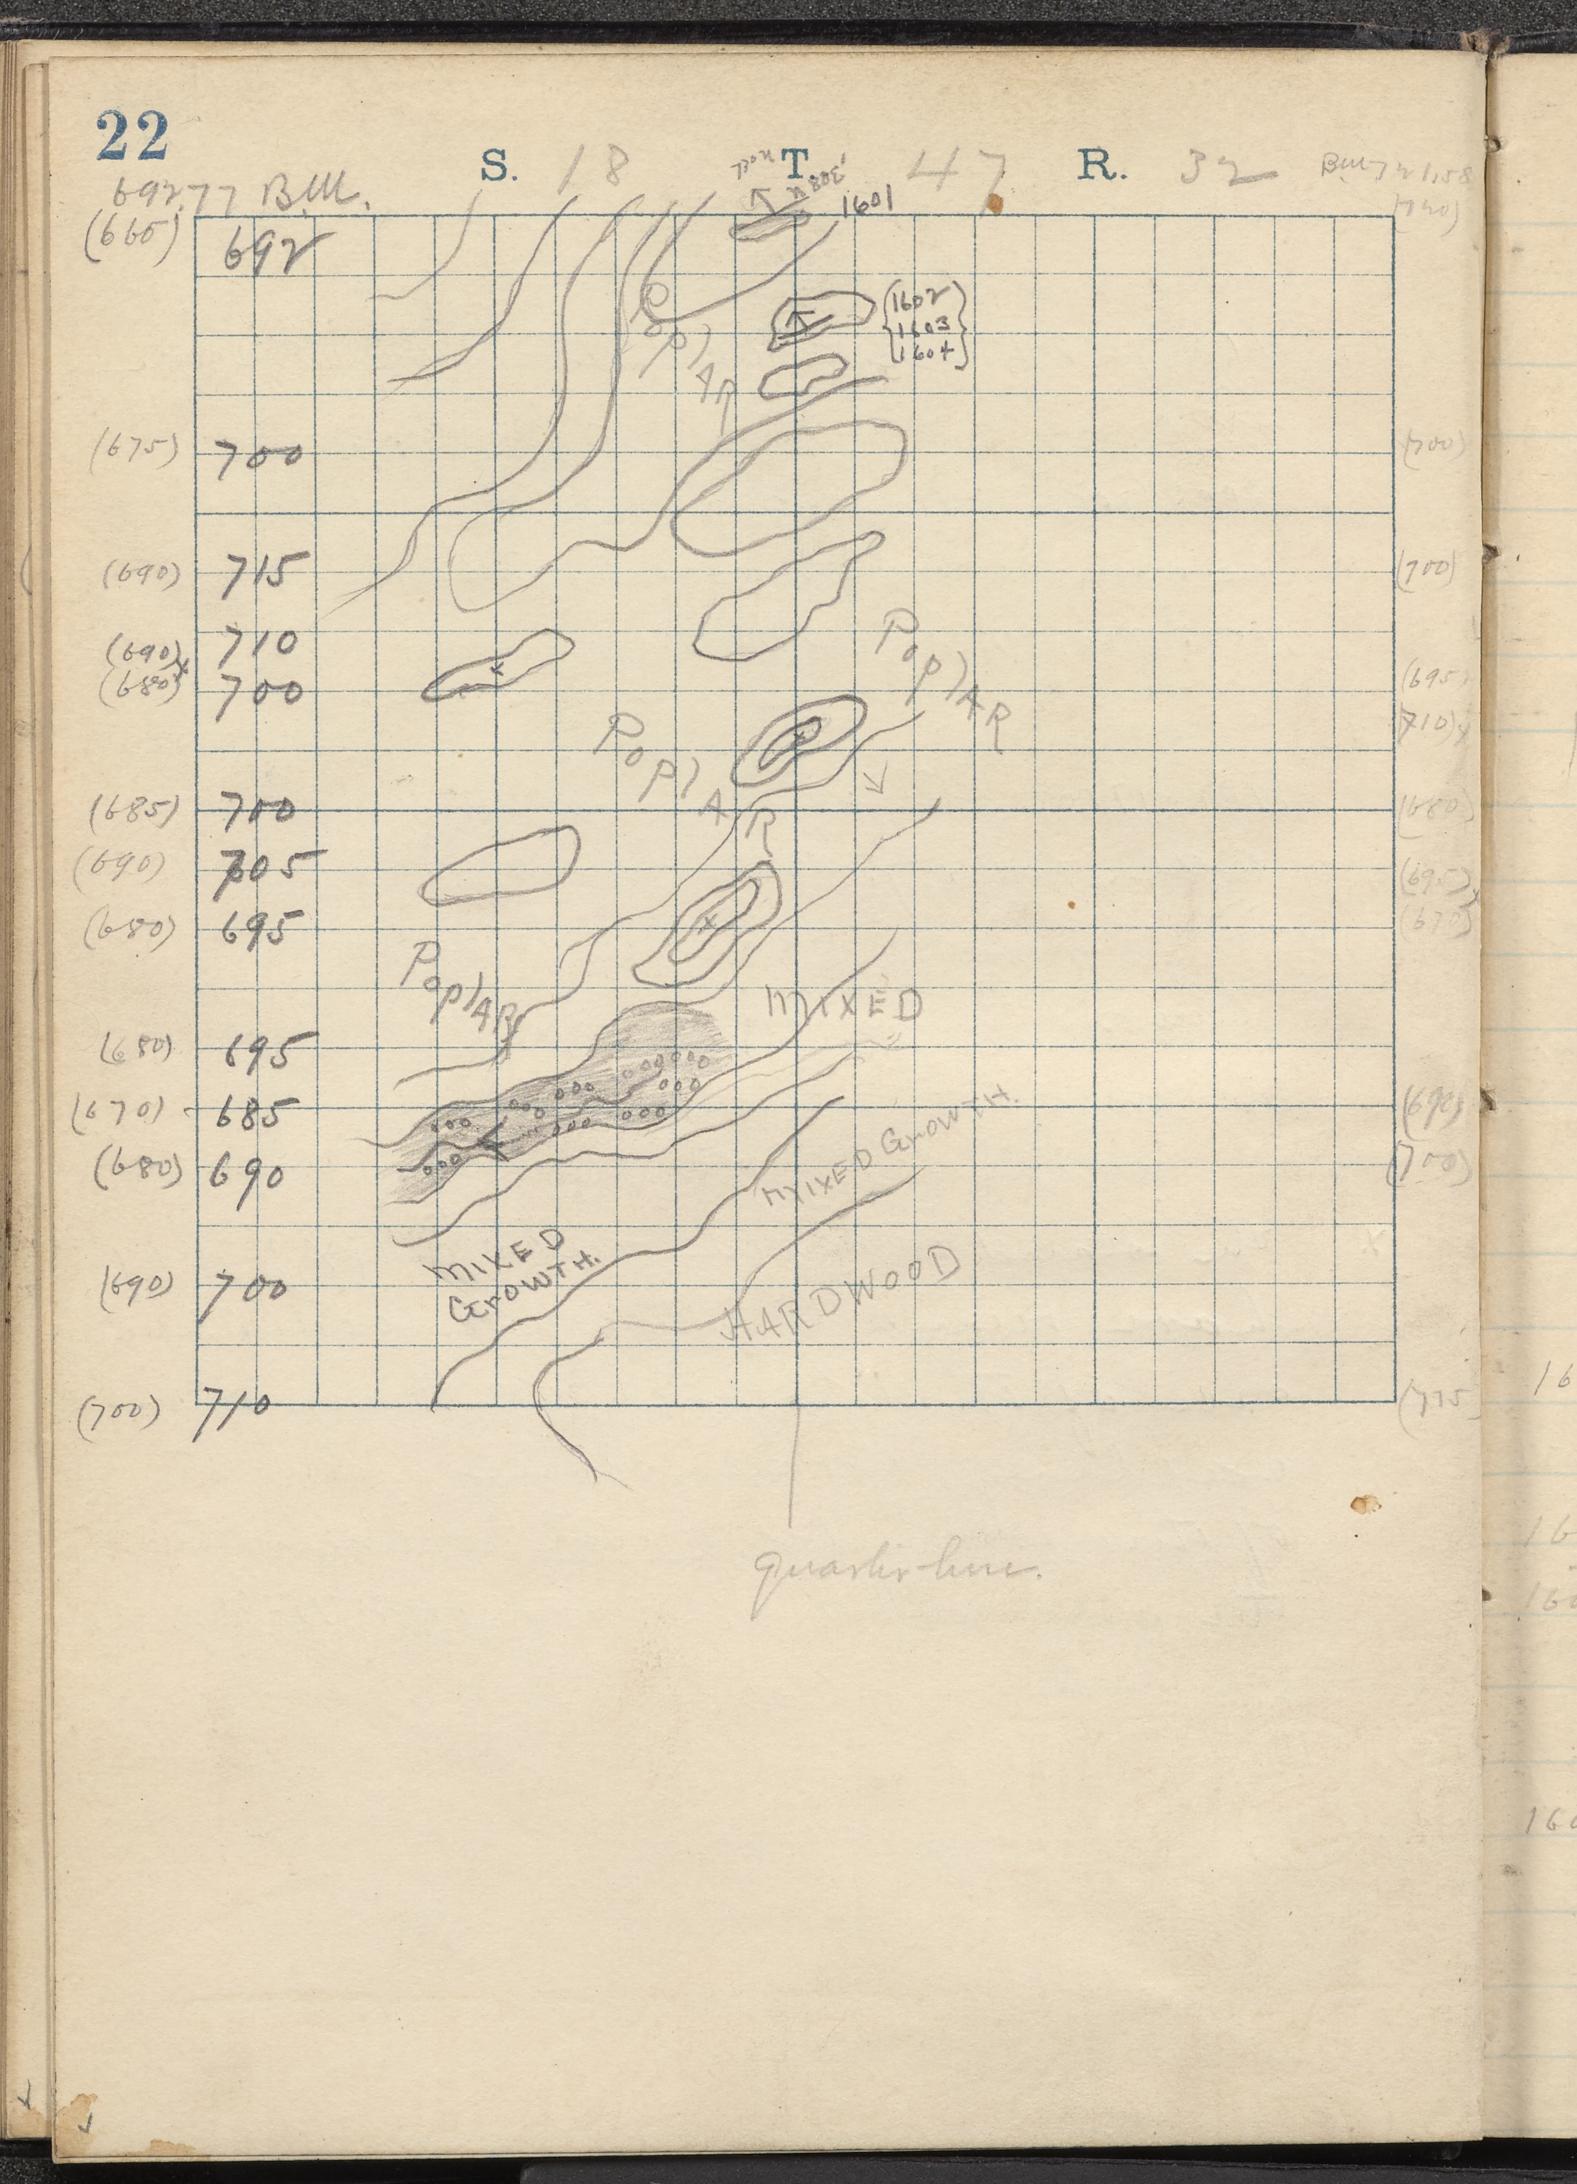 22
S. 18 T. 47 R. 32
692.77 B.M.
1601
(665) 692
{1602
1603
1604}
POplAR
(675) 700 (700)
(690) 715 (700)
(690) 710
POplAR
(680) x 700 (695)
(710) x
POplAR
(685) 700 (680)
(690) 705 (695) x
(680) 695 (670)
POplAR
MIXED
(680) 695
(670) 685 (690)
MIXED GrowTH.
(680) 690 (700)
MIXED
GrowTH.
(690) 700
HARDWOOD
(700) 710 (775
quarter-line.